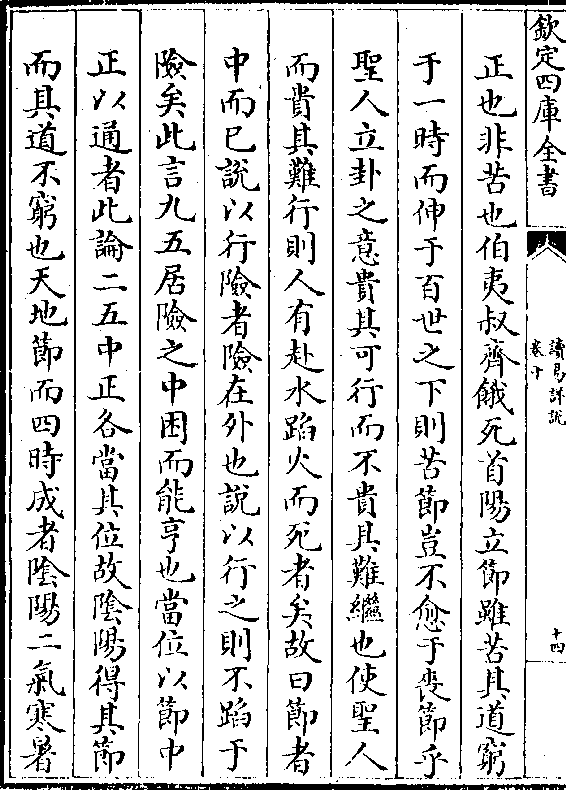 欽定四庫全書
讀易詳說
卷十
十四
正也非苦也伯夷叔齊餓死首陽立節雖苦其道窮
于一時而伸于百世之下則苦節豈不愈于喪節乎
聖人立卦之意貴其可行而不貴其難繼也使聖人
而貴其難行則人有赴水蹈火而死者矣故曰節者
中而已說以行險者險在外也說以行之則不蹈于
險矣此言九五居險之中困而能亨也當位以節中
正以通者此論二五中正各當其位故陰陽得其節
而其道不窮也天地節而四時成者陰陽二氣寒暑